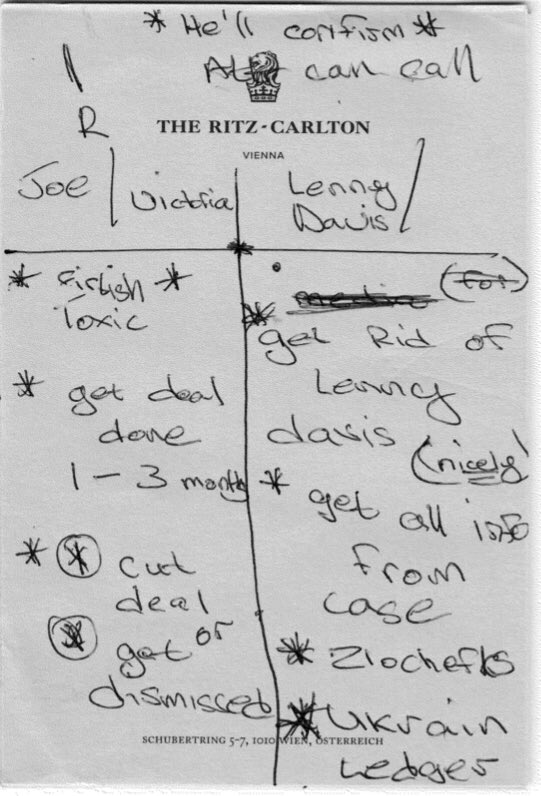 * He'll confirm *
can call
R
THE RITZ-CARLTON
VIENNA
Joe / Victoria
Lenny
Davis /
* Firtish *
Toxic
* get deal
done
1-3 month
* * cut
deal
or
* get
dismissed
(for)
* get Rid of
Lenny
davis
(nicely)
* get all info
from
case
* Zlochefks
* Ukrain
Ledger
SCHUBERTRING 5-7, 1010 WIEN, ÖSTERREICH